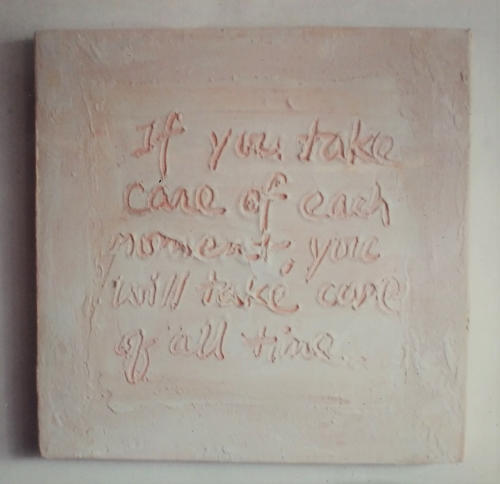 If you take
care of each
moment, you
will take care
of all time.